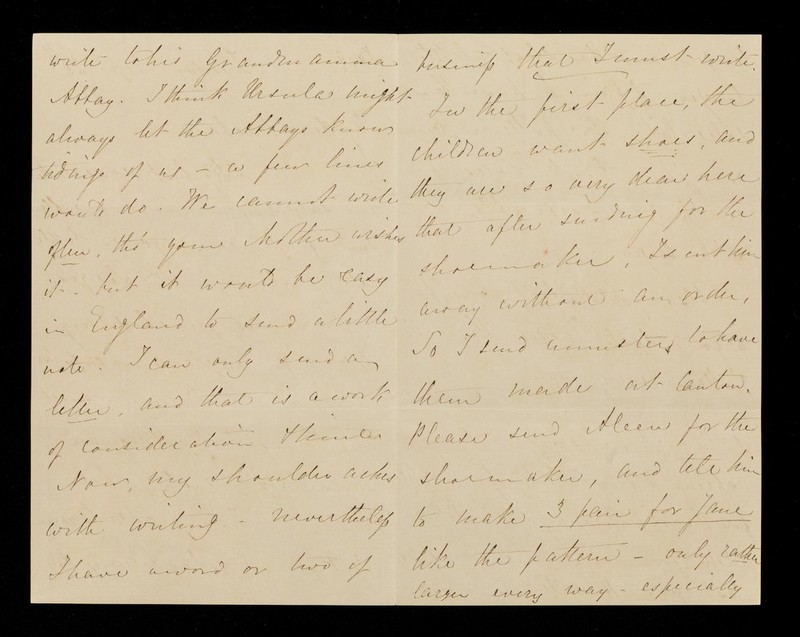 write to his Grandmamma
Abbay. I think Ursula might
always let the Abbays know
tidings of us - a few lines
would do. We cannot write
often, tho' your Mother wishes
it - but it would be easy
in England to send a little
note. I can only send a
letter, and that is a work
of consideration & time
Now, my shoulder aches
with writing - nevertheless
I have a word or two of
business that I must write.
In the first place, the
children want shoes, and
they are so very dear here
that after sending for the
shoemaker, I sent him
away without an order,
So I send musters to have
them made at Canton.
Please send Aleen for the
shoemaker, and tell him
to make 3 pair for Jane
like the pattern - only rather
larger every way - especially